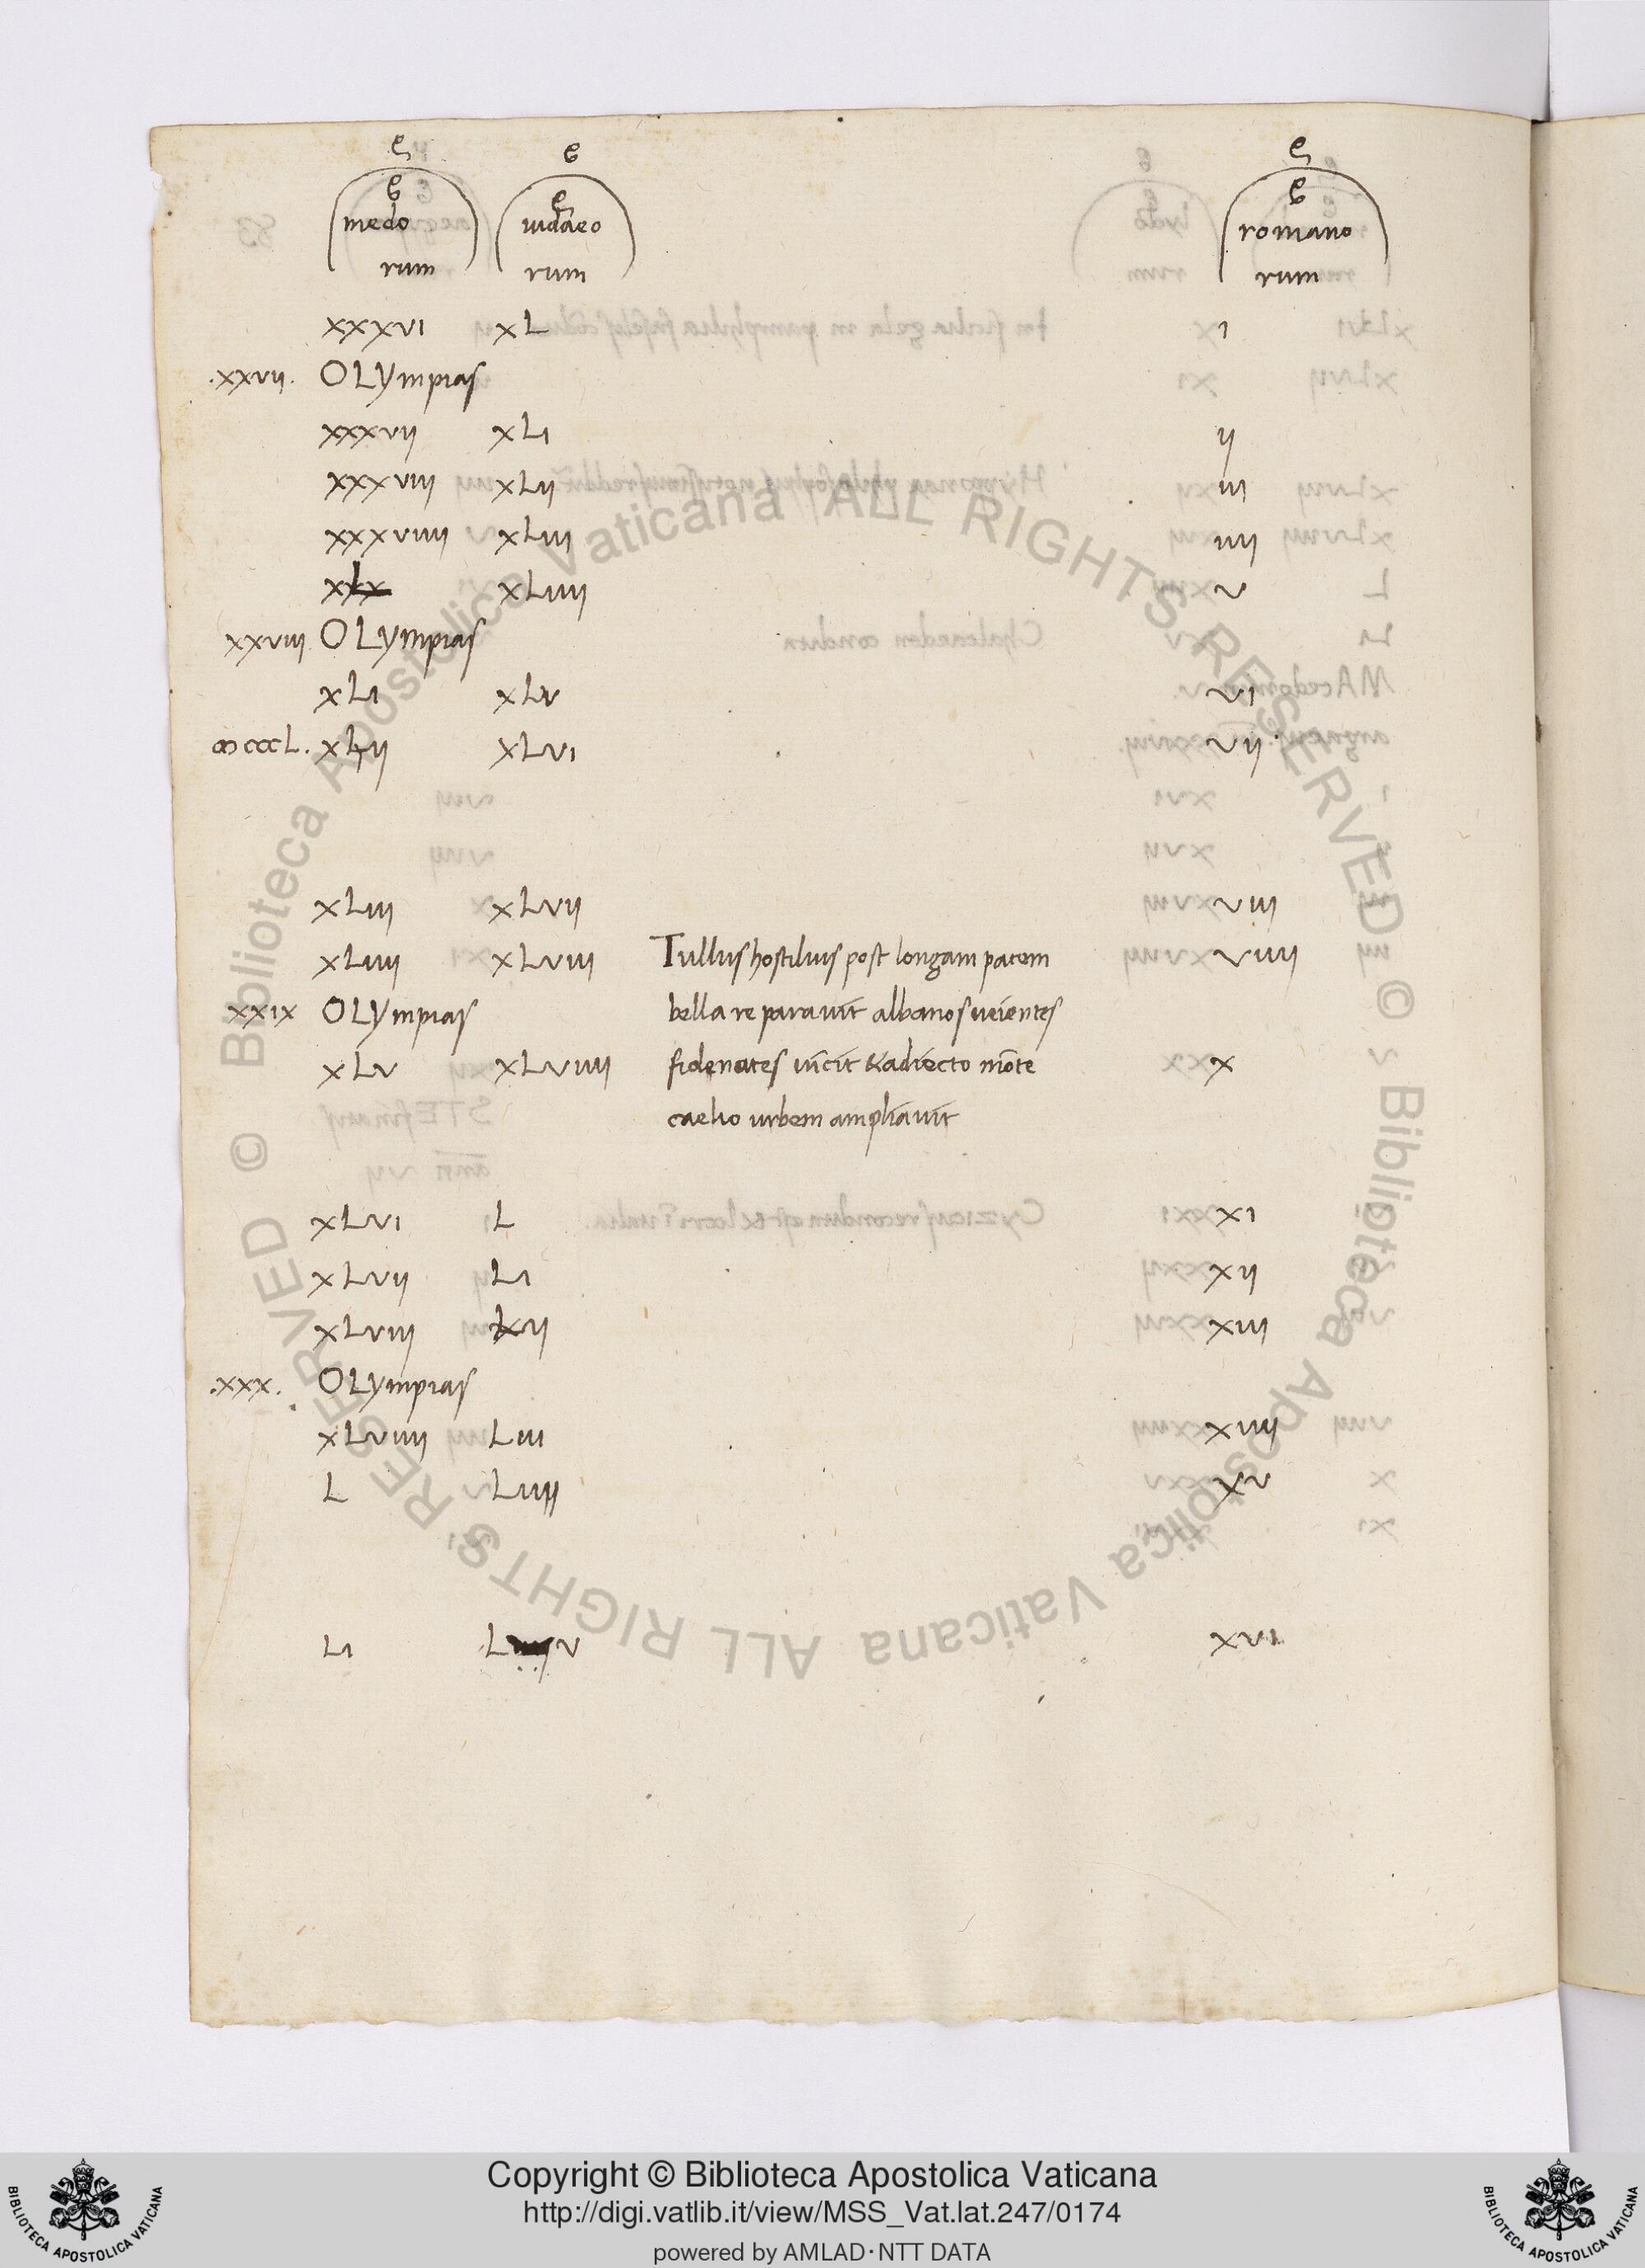 medo iudaeo romano
rum rum rum
xxxvi xL i
.xxvii. OLYmpias
xxxvii xLi ii
xxxviii xLii iii
xxxviiii xLiii iiii
xL xLiiii v
xxviii OLYmpias
xLi xLv vi
ꝏcccL. xLii xLvi vii
xLiii xLvii viii
xLiiii xLviii Tullus hostilius post longam pacem viiii
xxix OLYmpias bella reparavit albanos ueientes
xLv xLviiii fidenates uicit & adiecto mõte x
caelio urbem ampliavit
xLvi L xi
xLvii Li xii
xLviii Lii xiii
.xxx. OLYmpias
xLviiii Liii xiiii
L Liiii xv
Li Lv xvi
Biblioteca Apostolica Vaticana ALL RIGHTS RESERVED ©
Biblioteca Apostolica Vaticana ALL RIGHTS RESERVED ©
Copyright © Biblioteca Apostolica Vaticana
http://digi.vatlib.it/view/MSS_Vat.lat.247/0174
powered by AMLAD·NTT DATA
BIBLIOTECA APOSTOLICA VATICANA
BIBLIOTECA APOSTOLICA VATICANA